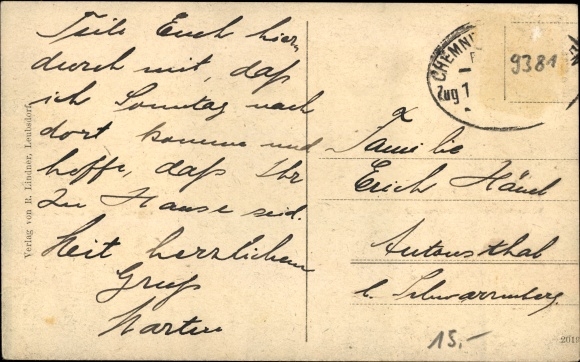 Teile Euch hier
durch mit, daß
ich Sonntag nach
dort komme und
hoffe, daß Ihr
zu Hause seid.
Mit herzlichem
Gruß
Martin
Verlag von R. Lindner, Leubsdorf
CHEMNI
Zug 1
9381
Familie
Erich
Antonsthal
b. Schwarzenberg
15,-